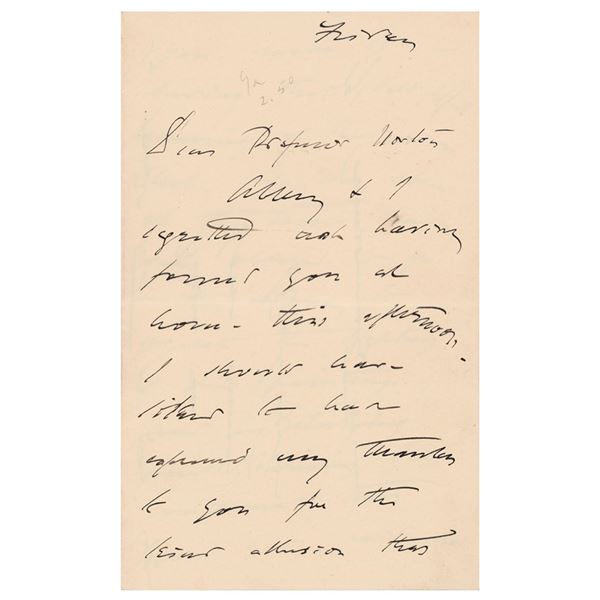 Friday
2.50
Dear Professor Norton
& I
regretted not having
found you at
home this afternoon.
I should have
liked to have
expressed my thanks
to you for the
kind allusion that